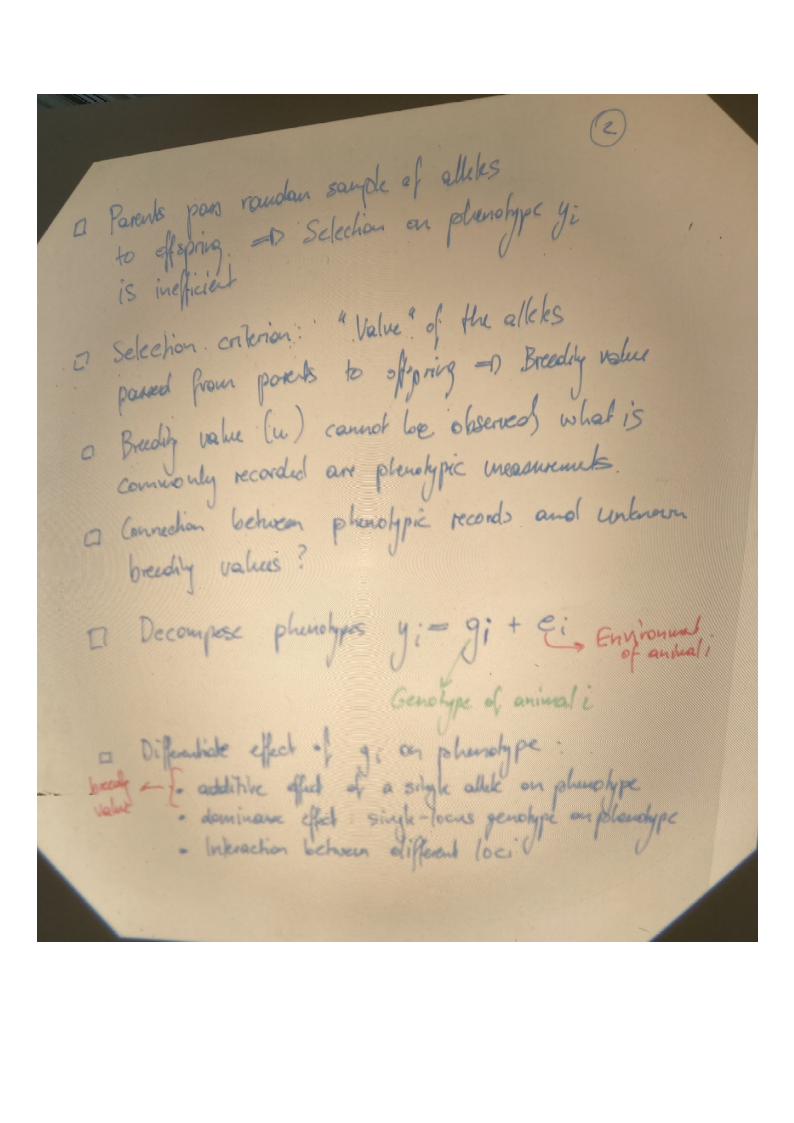 2
□ Parents pass random sample of alleles
to offspring. ⇒ Selection on phenotype yi
is inefficient
□ Selection criterion: "Value" of the alleles
passed from parents to offspring ⇒ Breeding value
□ Breeding value (u) cannot be observed, what is
commonly recorded are phenotypic measurements.
□ Connection between phenotypic records and unknown
breeding values?
□ Decompose phenotypes yi = gi + ei → Environment
of animal i
Genotype of animal i
□ Differentiate effect of gi on phenotype:
breeding value ← { • additive effect of a single allele on phenotype
• dominance effect: single-locus genotype on phenotype
• Interaction between different loci